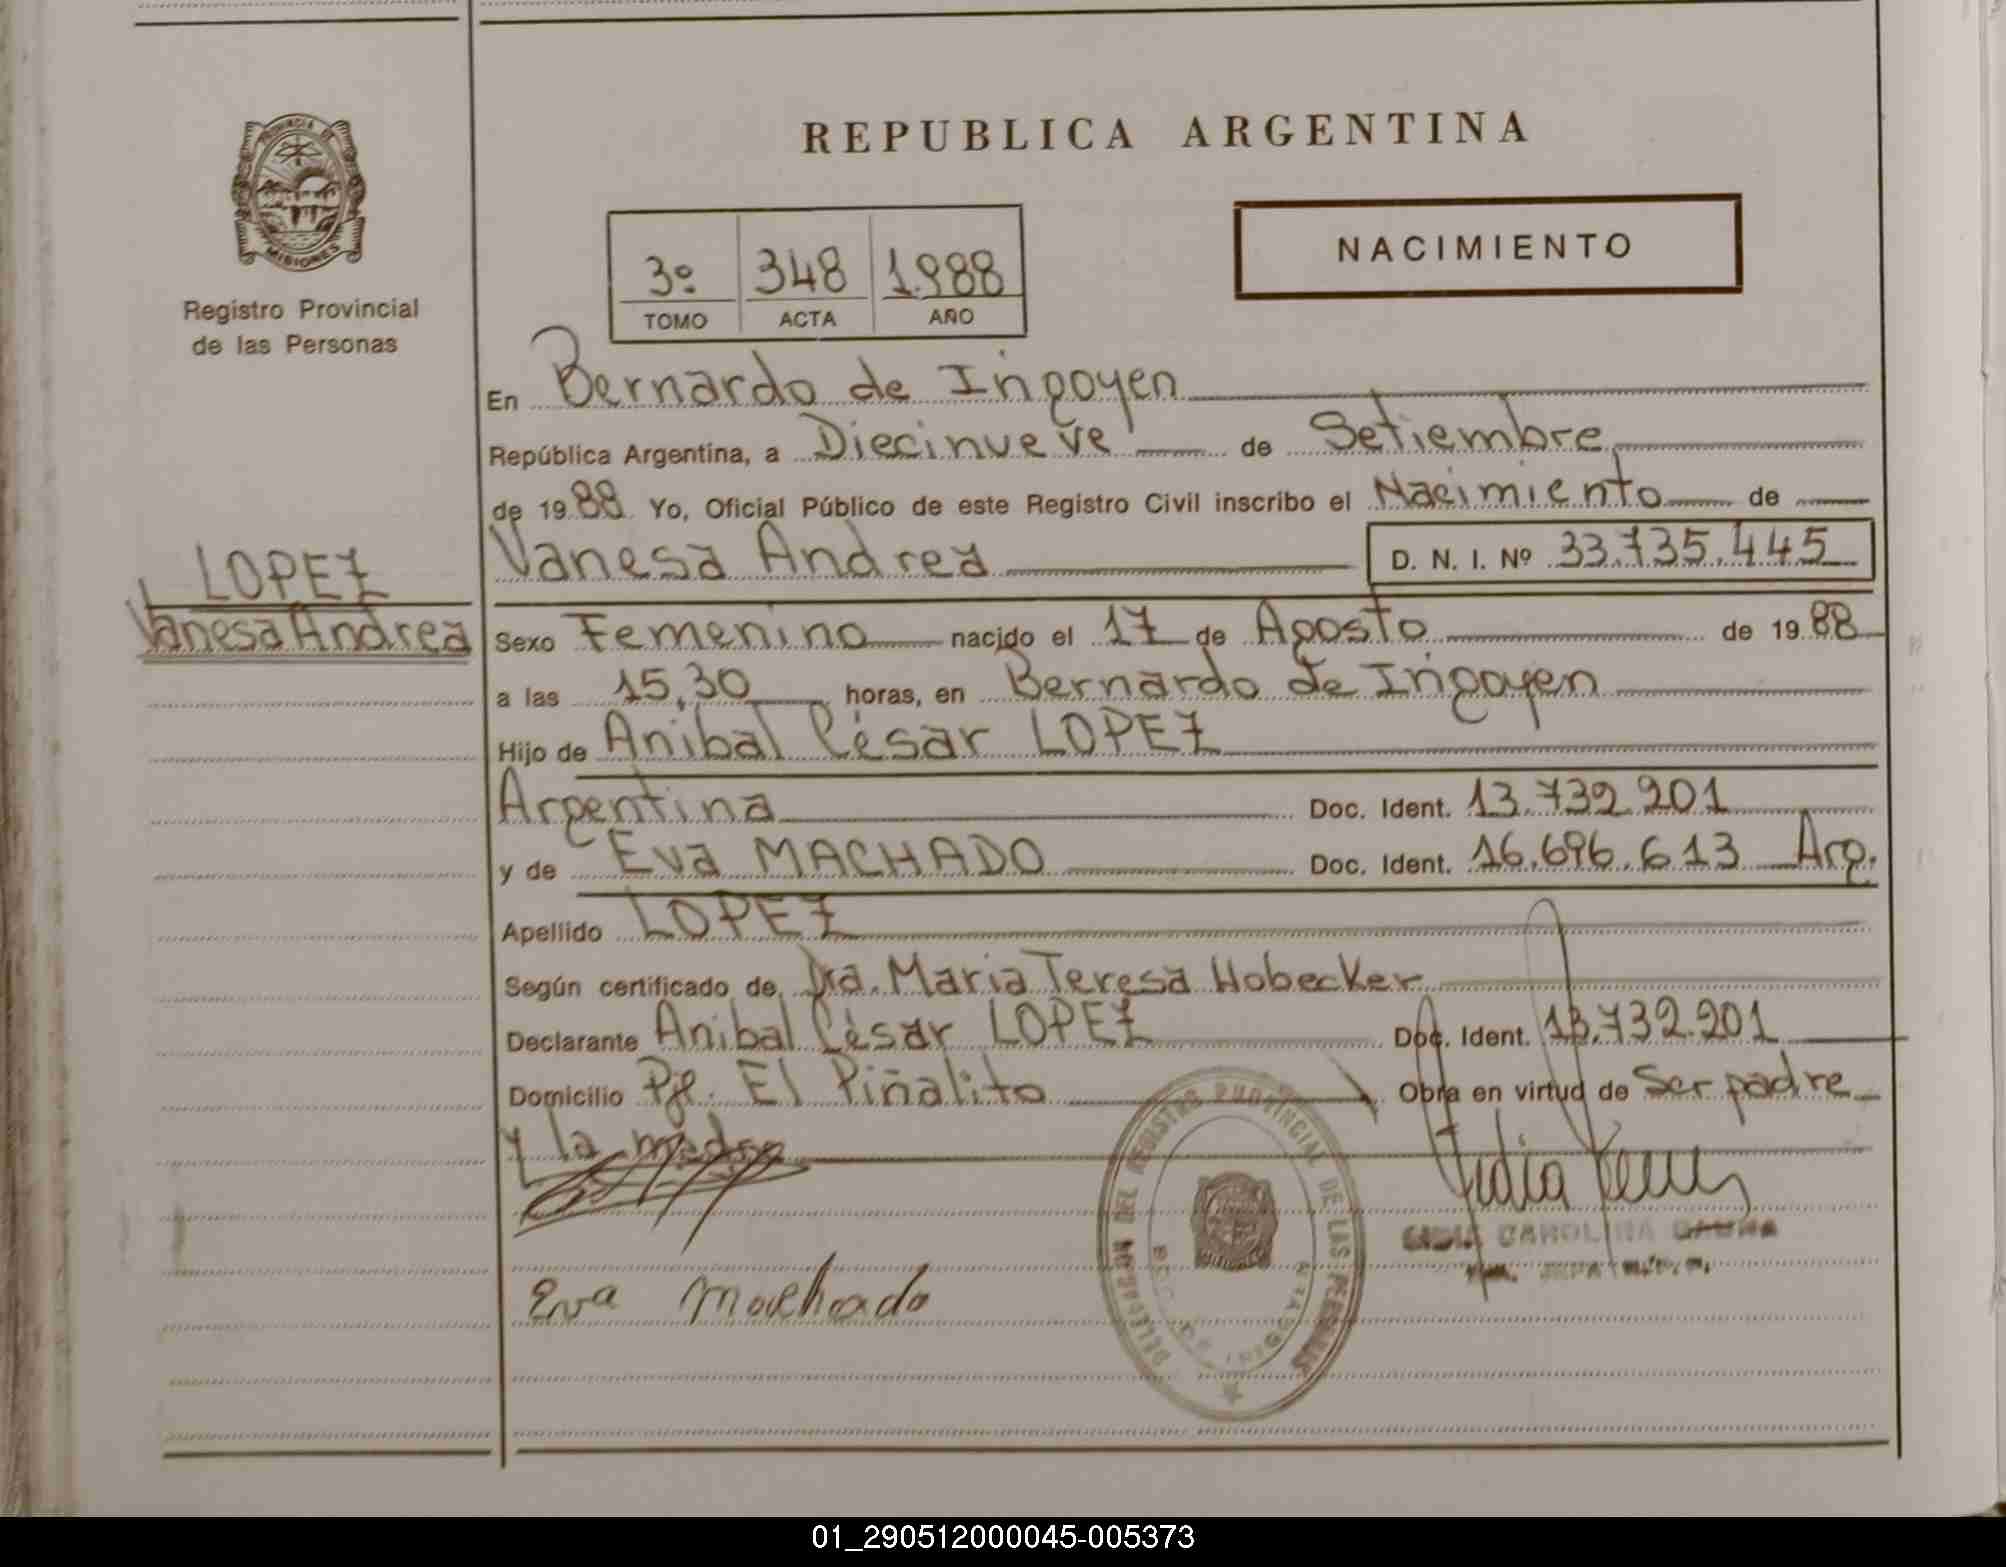 REPUBLICA ARGENTINA
PROVINCIA DE
MISIONES
Registro Provincial
de las Personas
3º 348 1.988
TOMO ACTA AÑO
NACIMIENTO
En Bernardo de Irigoyen
República Argentina, a Diecinueve de Setiembre
de 1988 Yo, Oficial Público de este Registro Civil inscribo el Nacimiento de
Vanesa Andrea D. N. I. Nº 33.735.445
LOPEZ
Vanesa Andrea
Sexo Femenino nacido el 17 de Agosto de 1988
a las 15,30 horas, en Bernardo de Irigoyen
Hijo de Anibal César LOPEZ
Argentina Doc. Ident. 13.732.201
y de Eva MACHADO Doc. Ident. 16.696.613 Arg.
Apellido LOPEZ
Según certificado de Dra. Maria Teresa Hobecker
Declarante Anibal César LOPEZ Doc. Ident. 13.732.201
Domicilio Pje. El Piñalito Obra en virtud de Ser padre
y la madre
Eva Machado
DELEGACION DEL REGISTRO PROVINCIAL DE LAS PERSONAS
BDO. DE IRIGOYEN
CAROLINA
01_290512000045-005373